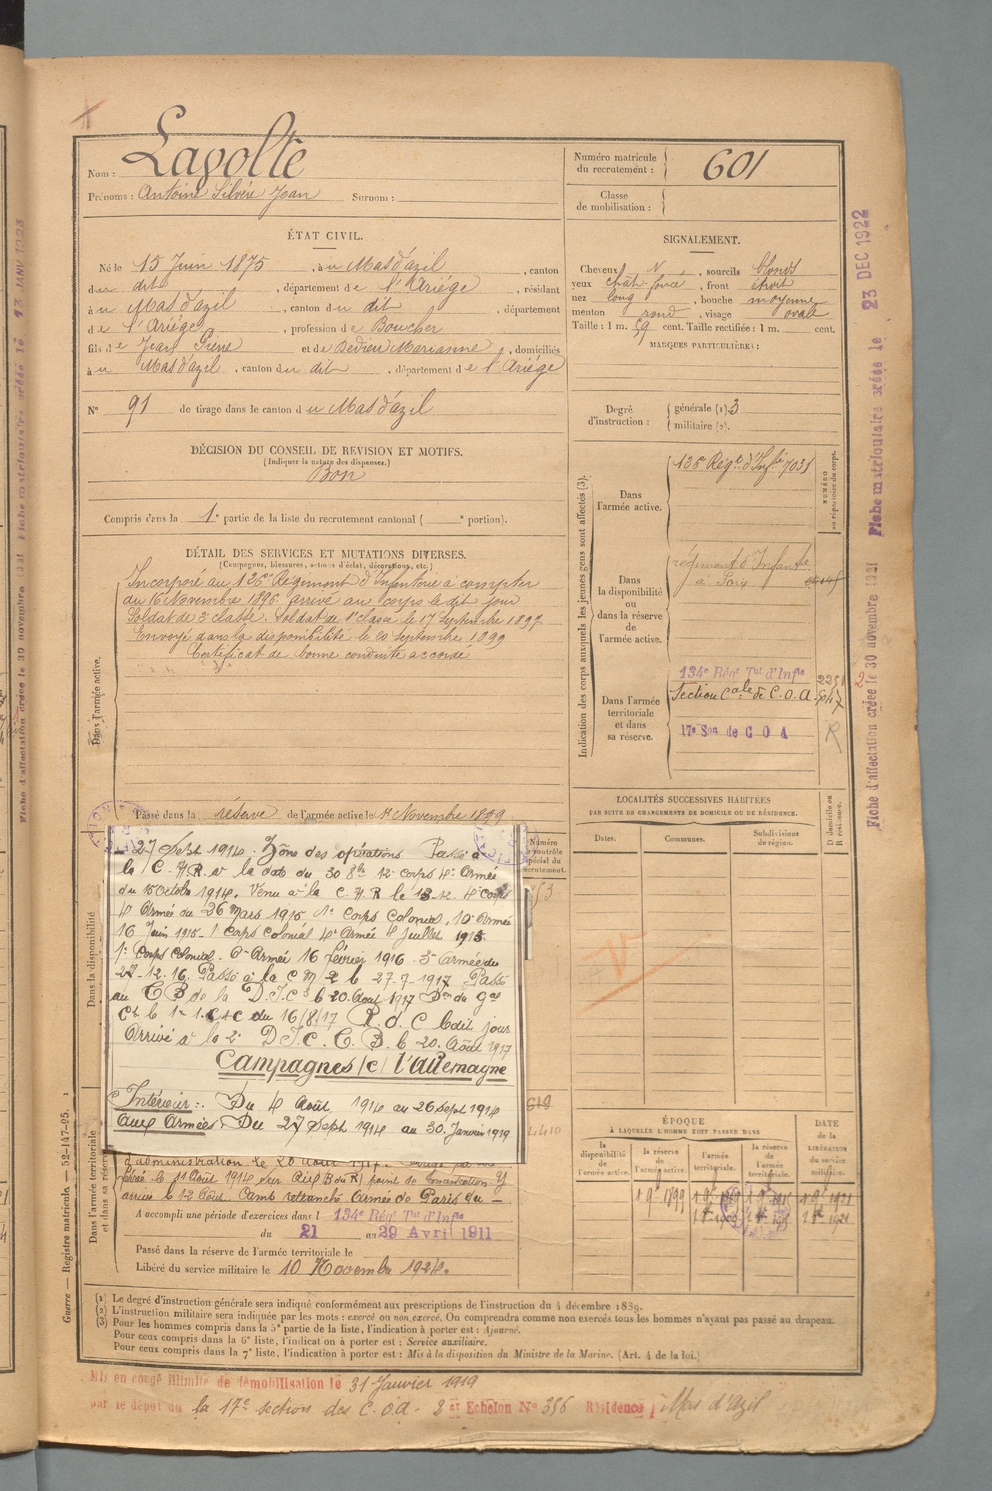 Nom : Lavolte
Prénoms : Antoine Silvère Jean Surnom :
Numéro matricule du recrutement : 601
Classe de mobilisation :
ÉTAT CIVIL.
Né le 15 Juin 1875, à u Mas d'azil, canton
du dit, département de l'Ariège, résidant
à u Mas d'azil, canton du dit, département
de l'Ariège, profession de Boucher
fils de Jean Pierre et de Dedieu Marianne, domiciliés
à u Mas d'azil, canton du dit, département de l'Ariège
N° 91 de tirage dans le canton du Mas d'azil
SIGNALEMENT.
Cheveux N, sourcils blonds
yeux chât. foncé, front étroit
nez long, bouche moyenne
menton rond, visage ovale
Taille : 1 m. 59 cent. Taille rectifiée : 1 m. cent.
MARQUES PARTICULIÈRES :
Degré d'instruction : générale (1). 3
militaire (2).
DÉCISION DU CONSEIL DE REVISION ET MOTIFS.
(Indiquer la nature des dispenses.)
Bon
Compris dans la 1e partie de la liste du recrutement cantonal ( e portion).
DÉTAIL DES SERVICES ET MUTATIONS DIVERSES.
(Campagnes, blessures, actions d'éclat, décorations, etc.)
Dans l'armée active.
Incorporé au 126e Régiment d'Infanterie à compter
du 16 Novembre 1896 arrivé au corps le dit jour
Soldat de 2e classe. Soldat de 1e classe le 17 Septembre 1897.
Envoyé dans la disponibilité le 20 Septembre 1899
Certificat de bonne conduite accordé
Passé dans la réserve de l'armée active le 1 Novembre 1899
Dans la disponibilité
27 Sept 1914 - Zône des opérations Passé à
la C.H.R. à la date du 30 8bre 12e corps 4e Armée
du 15 Octobre 1914. Venu à la C.H.R le 13-12. 4e corps
4e Armée du 26 Mars 1915 1e Corps Colonial, 10e Armée
16 Juin 1915 - 1 Corps Colonial 4e Armée 4 Juillet 1915
1e Corps Colonial - 6e Armée 16 février 1916 - 3e Armée du
27-12-16. Passé à la C M 2 le 27-7-1917 Passé
au C B de la D.I.C le 20 Août 1917 Don du Gal
Ct le 1er C.A.C du 16/8/17 R.d.C le dit jour
Arrivé à la 2e D I C. C. B. le 20 Août 1917
Campagnes (c) l'Allemagne
Intérieur :. Du 4 Août 1914 au 26 sept 1914
Aux Armées. Du 27 Sept 1914 au 30 Janvier 1919
Dans l'armée territoriale et dans sa réserve
d'administration le 20 Août
arrivé le 12 Août. Camp retranché Armée de Paris du
A accompli une période d'exercices dans l 134e Régt Tal d'Infie
du 21 au 29 Avril 1911
Passé dans la réserve de l'armée territoriale le
Libéré du service militaire le 10 Novembre 1924.
Indication des corps auxquels les jeunes gens sont affectés (3).
NUMÉRO au répertoire du corps.
Dans l'armée active.
126e Régt d'Infie 7031
Dans la disponibilité ou dans la réserve de l'armée active.
régiment d'Infanterie
Dans l'armée territoriale et dans sa réserve.
134e Régt Tal d'Infie
Section Cale de C.O.A.
17e Son de C O A
R
LOCALITÉS SUCCESSIVES HABITÉES
PAR SUITE DE CHANGEMENTS DE DOMICILE OU DE RÉSIDENCE.
Dates. Communes. Subdivisions de région. D domicile ou R résidence.
Numéro au contrôle spécial du recrutement.
ÉPOQUE
À LAQUELLE L'HOMME DOIT PASSER DANS
la disponibilité de l'armée active. la réserve de l'armée active. l'armée territoriale. la réserve de l'armée territoriale.
DATE de la LIBÉRATION du service militaire.
(1) Le degré d'instruction générale sera indiqué conformément aux prescriptions de l'instruction du 4 décembre 1889.
(2) L'instruction militaire sera indiquée par les mots : exercé ou non exercé. On comprendra comme non exercés tous les hommes n'ayant pas passé au drapeau.
(3) Pour les hommes compris dans la 5e partie de la liste, l'indication à porter est : Ajourné.
Pour ceux compris dans la 6e liste, l'indication à porter est : Service auxiliaire.
Pour ceux compris dans la 7e liste, l'indication à porter est : Mis à la disposition du Ministre de la Marine. (Art. 4 de la loi.)
Mis en congé illimité de démobilisation le 31 Janvier 1919
par le dépôt du la 17e section des C.O.A. - 2 et Echelon N° 356 Résidence Mas d'Azil
Guerre — Registre matricule. — 52-147-95.
Fiche d'affectation créée le 30 novembre 1921 Fiche matriculaire créée le 23 DEC 1922
Fiche d'affectation créée le 30 novembre Fiche matriculaire créée le 13 JANV 1923